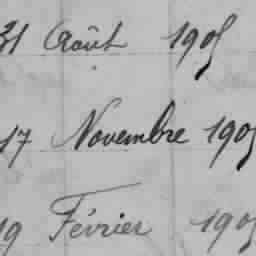 31 Août 1905
17 Novembre 1905
19 Février 1905